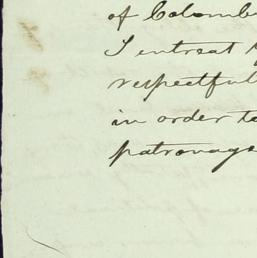 of Colomb
I entreat
respectful
in order to
patronage